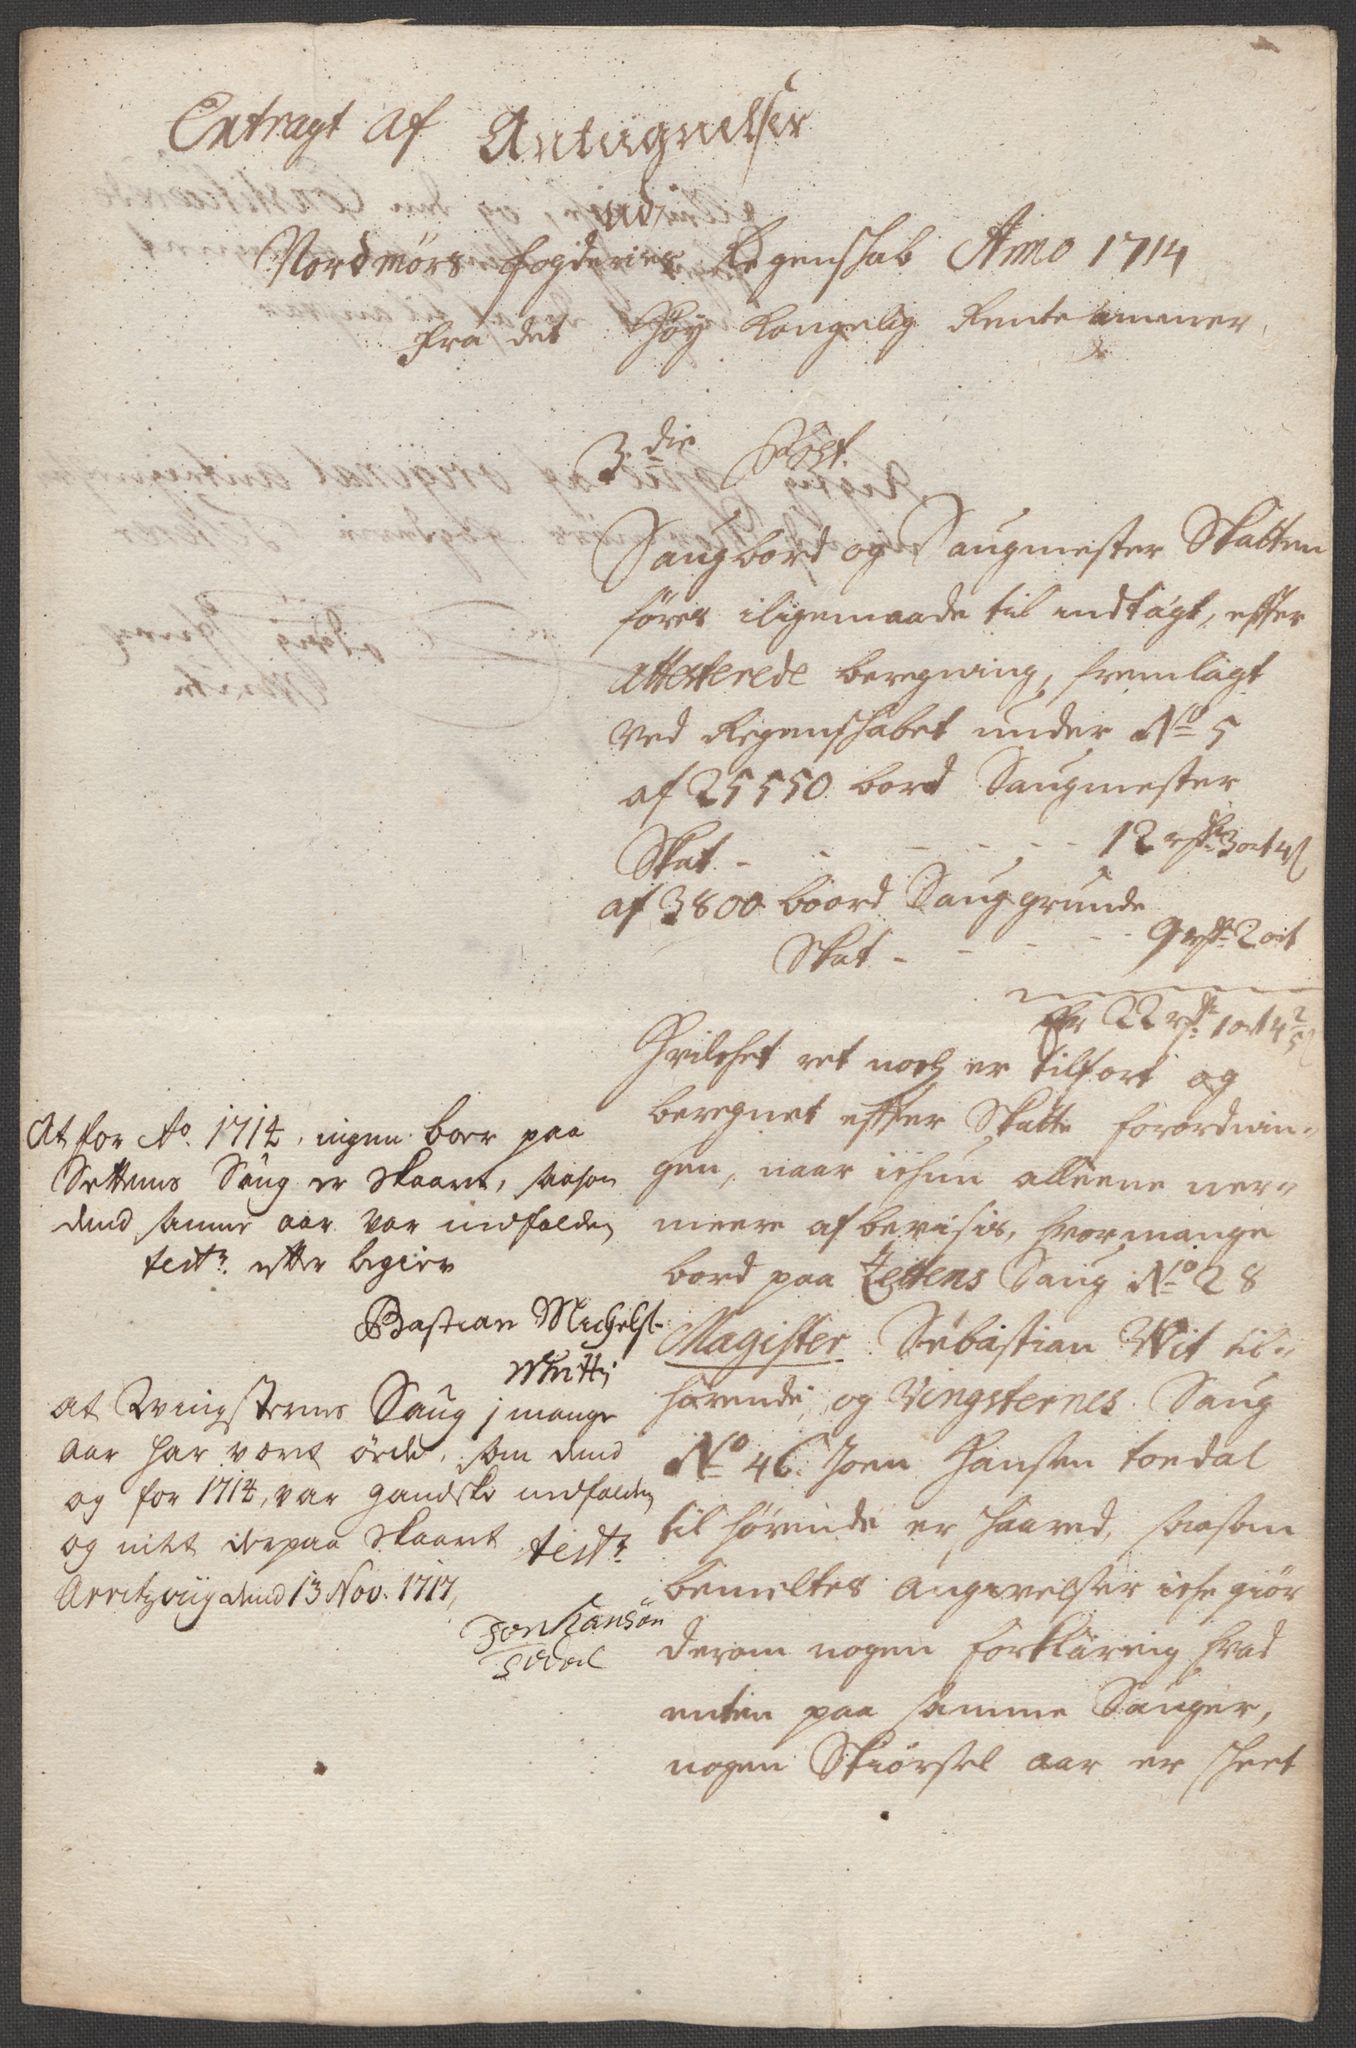 Extragt af Antegnelser
ud
Nordmørs fogderies Regenskab Anno 1714
fra det Høy Kongelig Rentekammer
3die Post.
Saugbord og Saugmester Skatten
føres iligemaade til indtægt, effter
attesterede beregning, fremlagt
ved Regenskabet under No 5
af 25550 bord Saugmester
Skat - - - - - 12 rdr 3 ort 4 s
af 3800 boord Sauggrunde
Skat - - - - 9 rdr 2 ort
Er 22 rdr 1 ort 4 2/5 s
Hvilchet ret noch er tilført og
beregnet effter Skatte forordnin-
gen, naar ichun alleene ner-
meere afbevisis, hvormange
bord paa Settens Saug No 28
Magister Sebastian Wit til-
hørende, og Vingsternes Saug
No 46. Joen Hansen toedal
til hørende er skaared, saasom
bemeltes Angivelser iche giør
derom nogen forklaring hvad
enten paa samme Sauger,
nogen Skiørsel aar er skeet
At for Ao. 1714, ingen boer paa
Settems Saug er skaaret, saasom
dend samme aar var nedfalden
test: efter begier
Bastian Michelss:
Whitt
at Wingsternes Saug j mange
aar har vært øde, som dend
og for 1714, var gandske nedfalden
og inted derpaa skaaret test:
Arritzviig dend 13 Nov: 1717,
Jon Hansøn
Todal